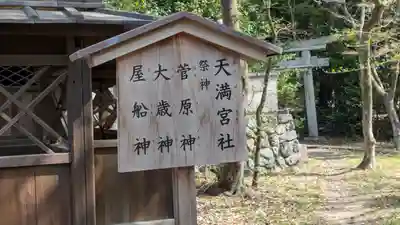 天満宮社
祭神
菅原神
大歳神
屋船神